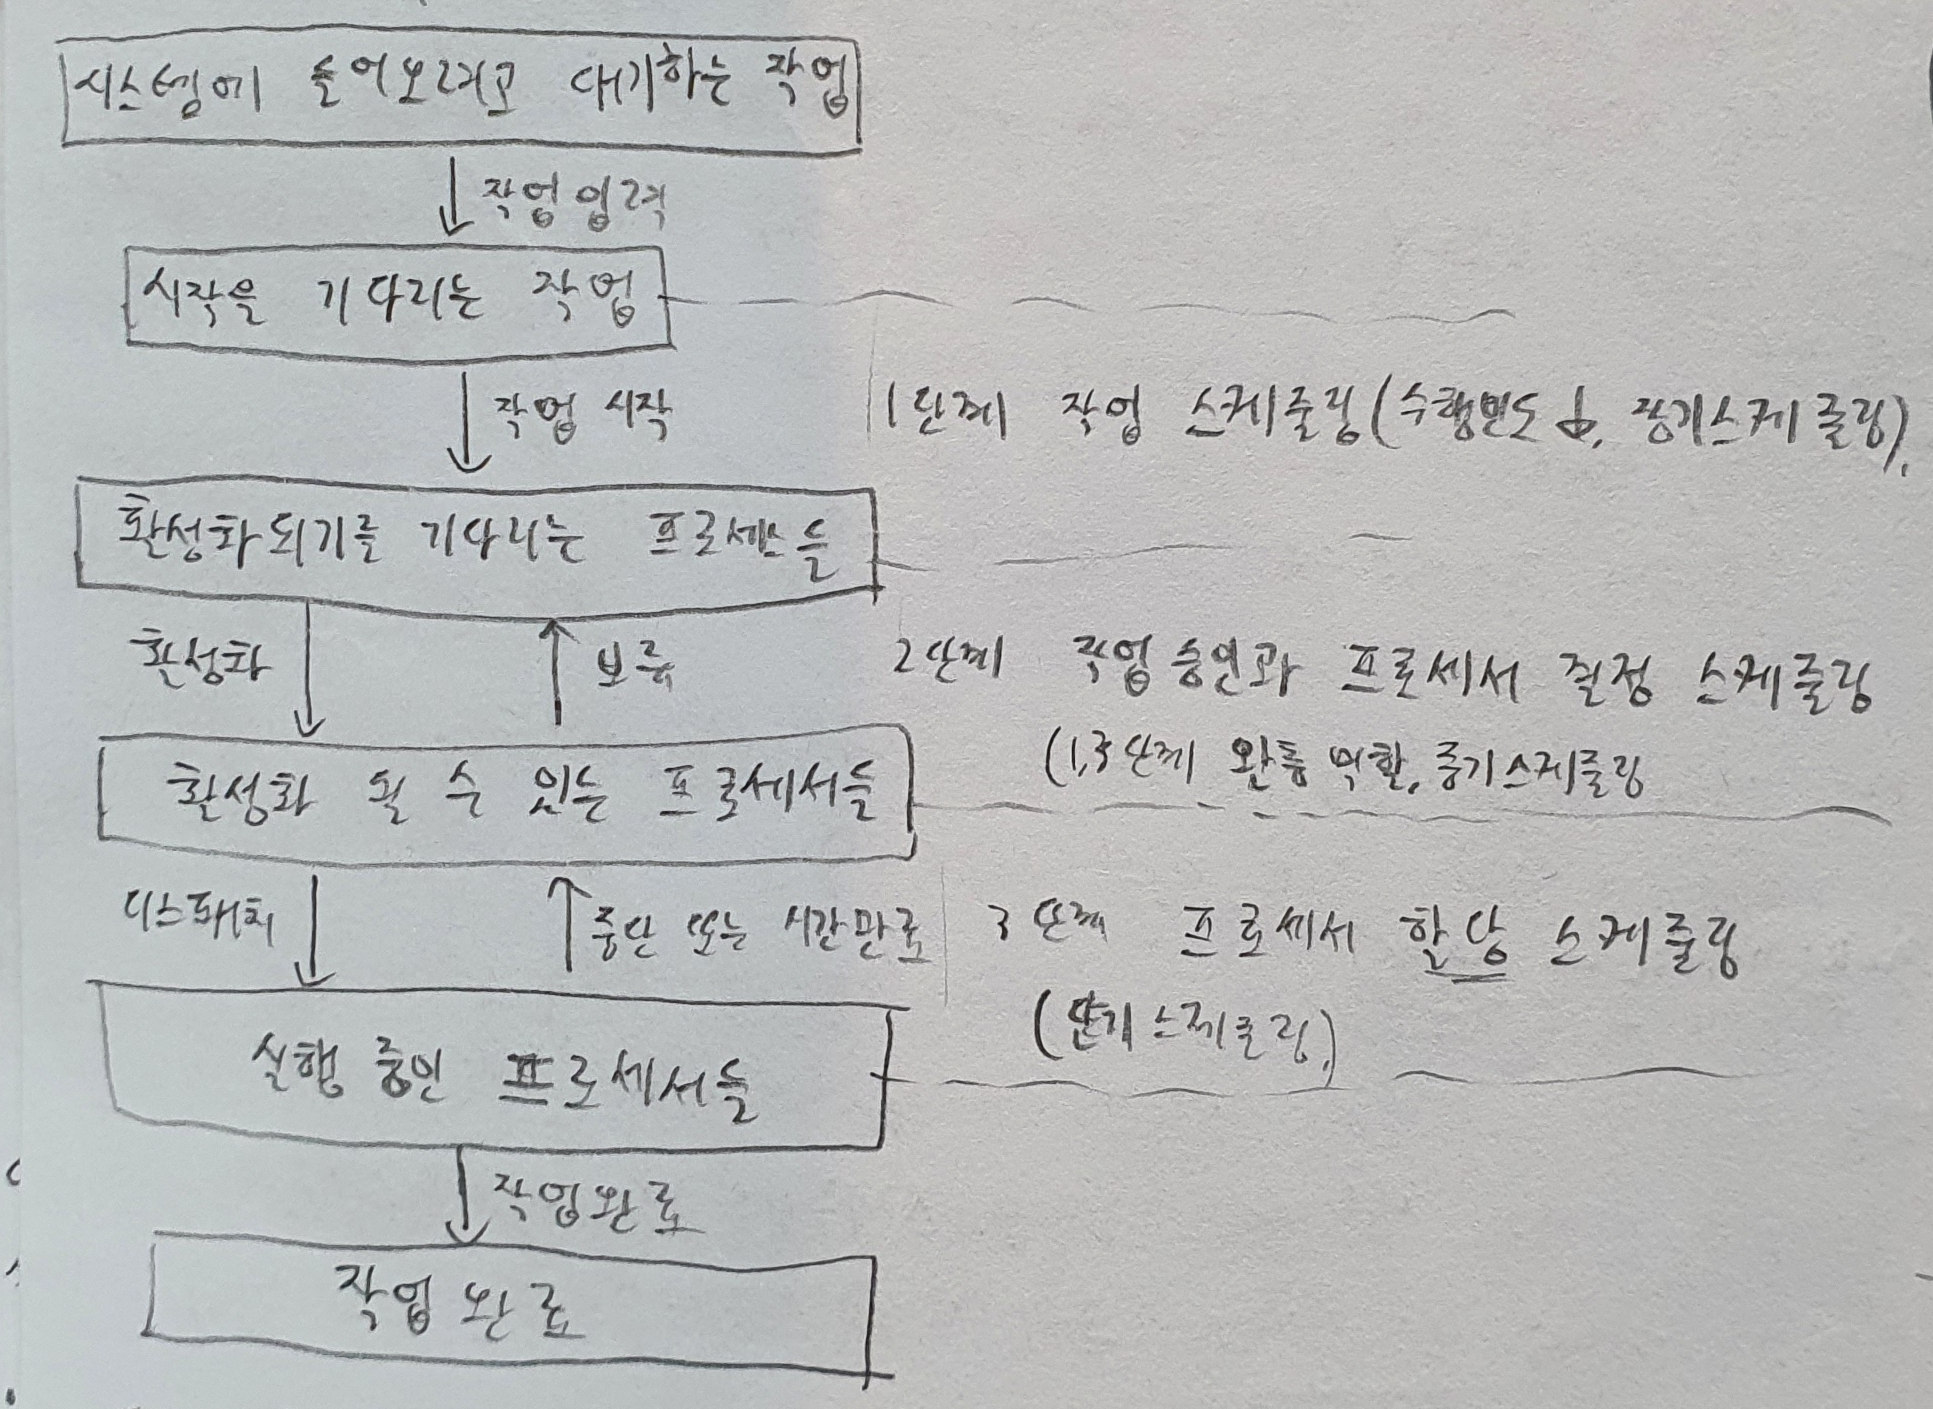 시스템에 들어오려고 대기하는 작업
작업입력
시작을 기다리는 작업
작업 시작
1단계 작업 스케줄링(수행빈도↓, 장기스케줄링).
환성화되기를 기다리는 프로세스들
환성화
보류
2단계 작업승인과 프로세서 결정 스케줄링
(1,3단계 완통 역할, 중기스케줄링
환성화 될 수 있는 프로세서들
디스패치
중단 또는 시간만료
3단계 프로세서 할당 스케줄링
(단기스케줄링.)
실행 중인 프로세서들
작업완료
작업완료